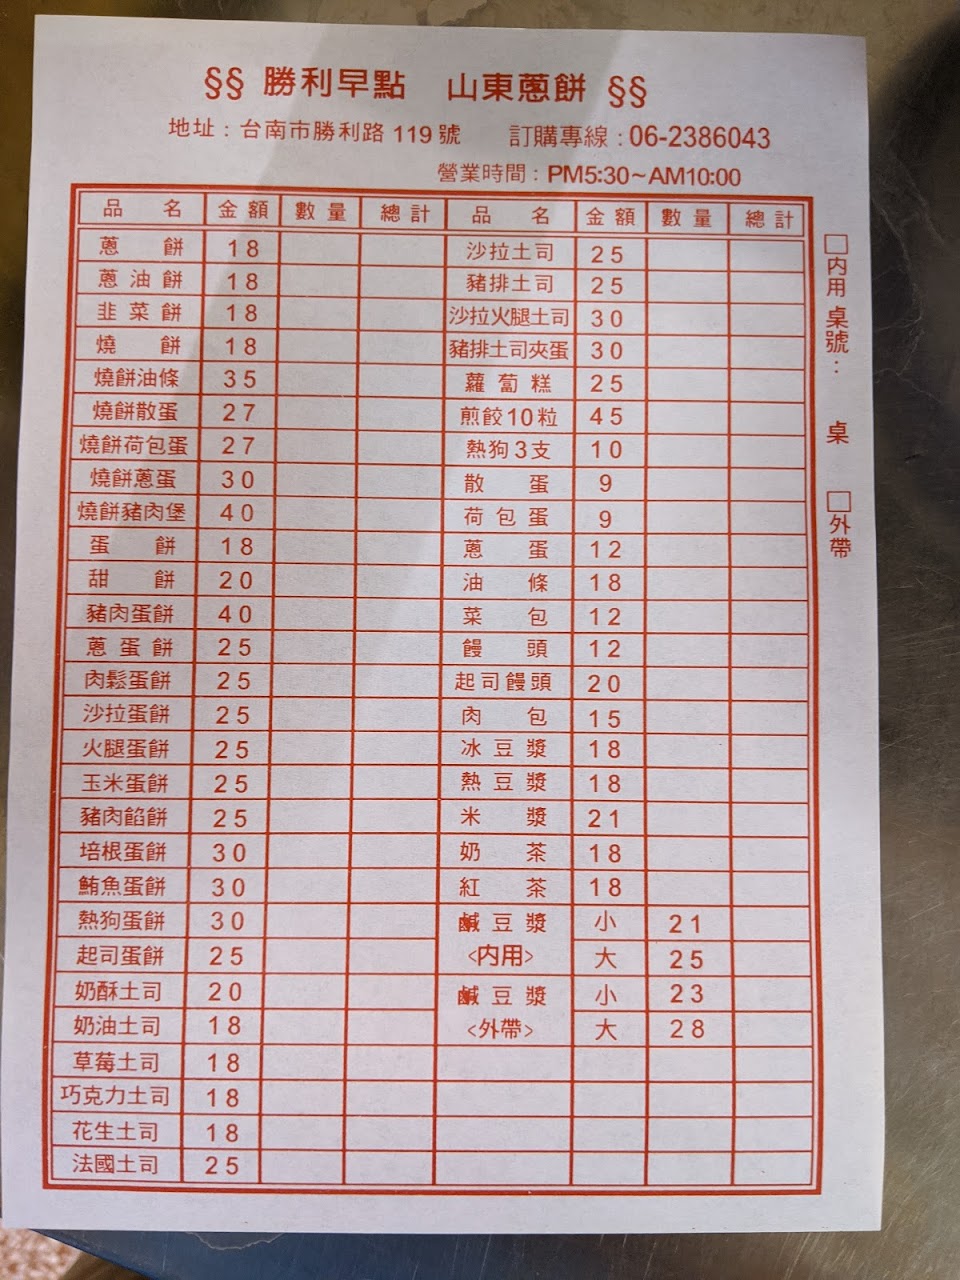 §§ 勝利早點 山東蔥餅 §§
地址：台南市勝利路 119 號 訂購專線：06-2386043
營業時間：PM5:30～AM10:00
品名 金額 數量 總計 品名 金額 數量 總計
蔥餅 18 沙拉土司 25
蔥油餅 18 豬排土司 25
韭菜餅 18 沙拉火腿土司 30
燒餅 18 豬排土司夾蛋 30
燒餅油條 35 蘿蔔糕 25
燒餅散蛋 27 煎餃10粒 45
燒餅荷包蛋 27 熱狗3支 10
燒餅蔥蛋 30 散蛋 9
燒餅豬肉堡 40 荷包蛋 9
蛋餅 18 蔥蛋 12
甜餅 20 油條 18
豬肉蛋餅 40 菜包 12
蔥蛋餅 25 饅頭 12
肉鬆蛋餅 25 起司饅頭 20
沙拉蛋餅 25 肉包 15
火腿蛋餅 25 冰豆漿 18
玉米蛋餅 25 熱豆漿 18
豬肉餡餅 25 米漿 21
培根蛋餅 30 奶茶 18
鮪魚蛋餅 30 紅茶 18
熱狗蛋餅 30 鹹豆漿 小 21
起司蛋餅 25 <內用> 大 25
奶酥土司 20 鹹豆漿 小 23
奶油土司 18 <外帶> 大 28
草莓土司 18
巧克力土司 18
花生土司 18
法國土司 25
□內用 桌號： 桌
□外帶